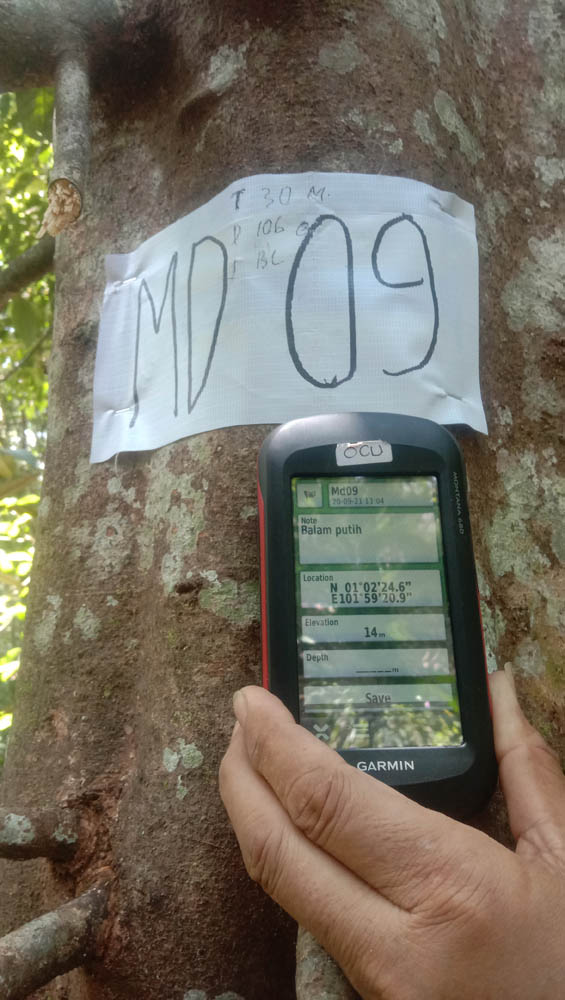 T 30 M.
D 106
BC
MD 09
OCU
MONTANA 680
Md09
20-09-21 11:04
Note
Balam putih
Location
N 01°02'24.6"
E101°59'20.9"
Elevation
14 m
Depth
_____m
Save
GARMIN